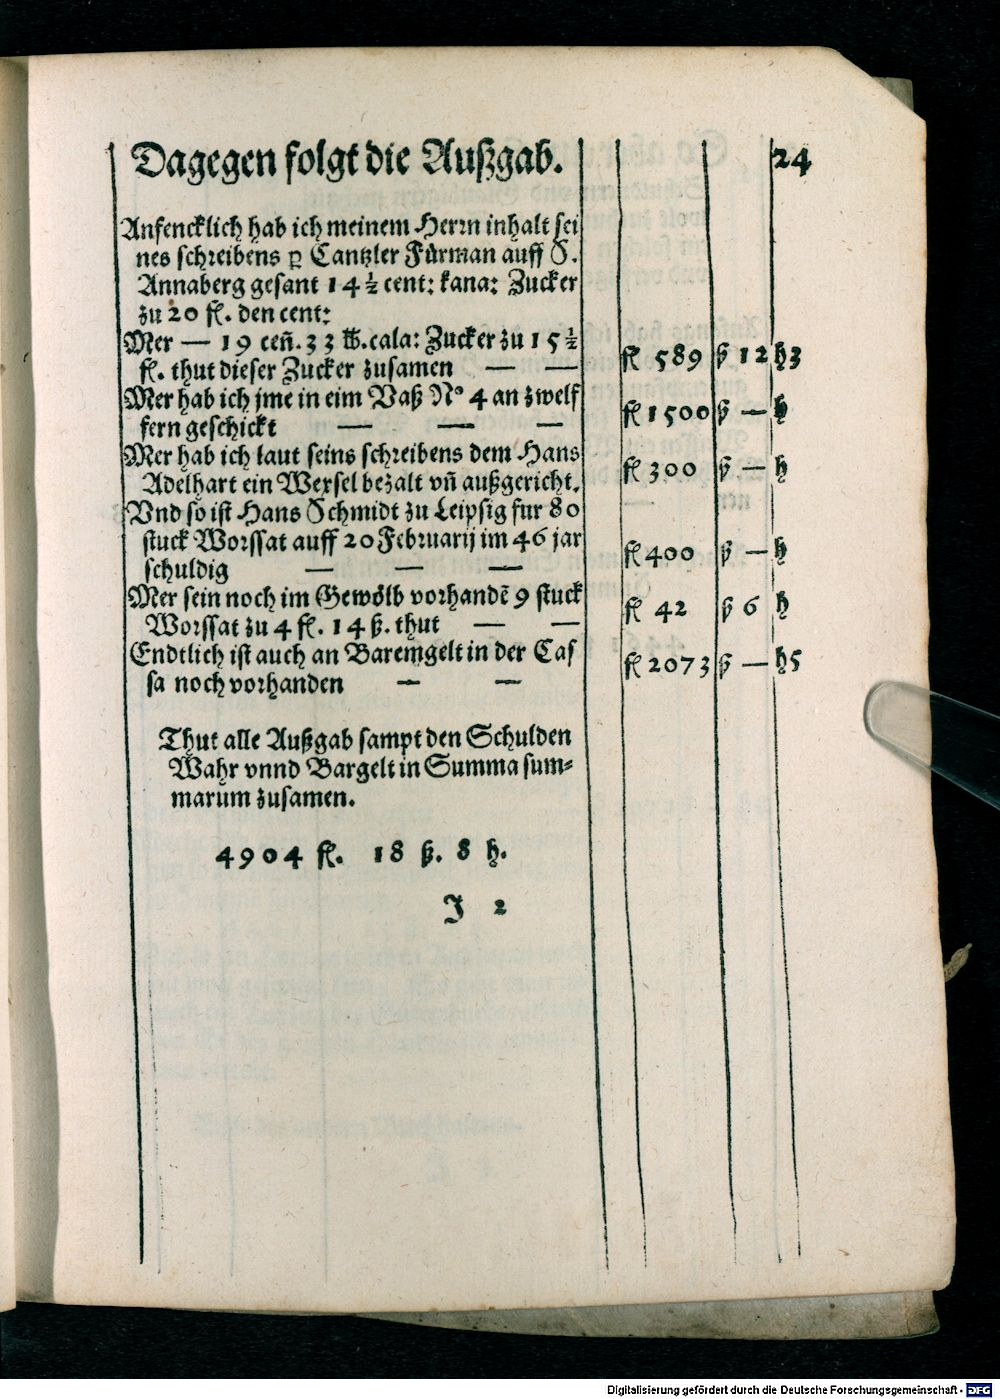 Dagegen folgt die Außgab. 24
Anfencklich hab ich meinem Herrn inhalt sei
nes schreibens ꝑ Cantzler Fürman auff S.
Annaberg gesant 14 ½ cent: kana: Zucker
zu 20 fl. den cent:
Mer — 19 ceñ. 33 ℔. cala: Zucker zu 15 ½
fl. thut dieser Zucker zusamen — — fl 589 ß 12 h 3
Mer hab ich jme in eim Vaß N° 4 an zwelf
fern geschickt — — — fl 1500 ß — h
Mer hab ich laut seins schreibens dem Hans
Adelhart ein Wexsel bezalt vñ außgericht. fl 300 ß — h
Vnd so ist Hans Schmidt zu Leipsig fur 80
stuck Worssat auff 20 Februarij im 46 jar
schuldig — — — fl 400 ß — h
Mer sein noch im Gewölb vorhandē 9 stuck
Worssat zu 4 fl. 14 ß. thut — — fl 42 ß 6 h
Endtlich ist auch an Baremgelt in der Cas
sa noch vorhanden — — fl 2073 ß — h 5
Thut alle Außgab sampt den Schulden
Wahr vnnd Bargelt in Summa sum-
marum zusamen.
4904 fl. 18 ß. 8 h.
J 2
Digitalisierung gefördert durch die Deutsche Forschungsgemeinschaft - DFG